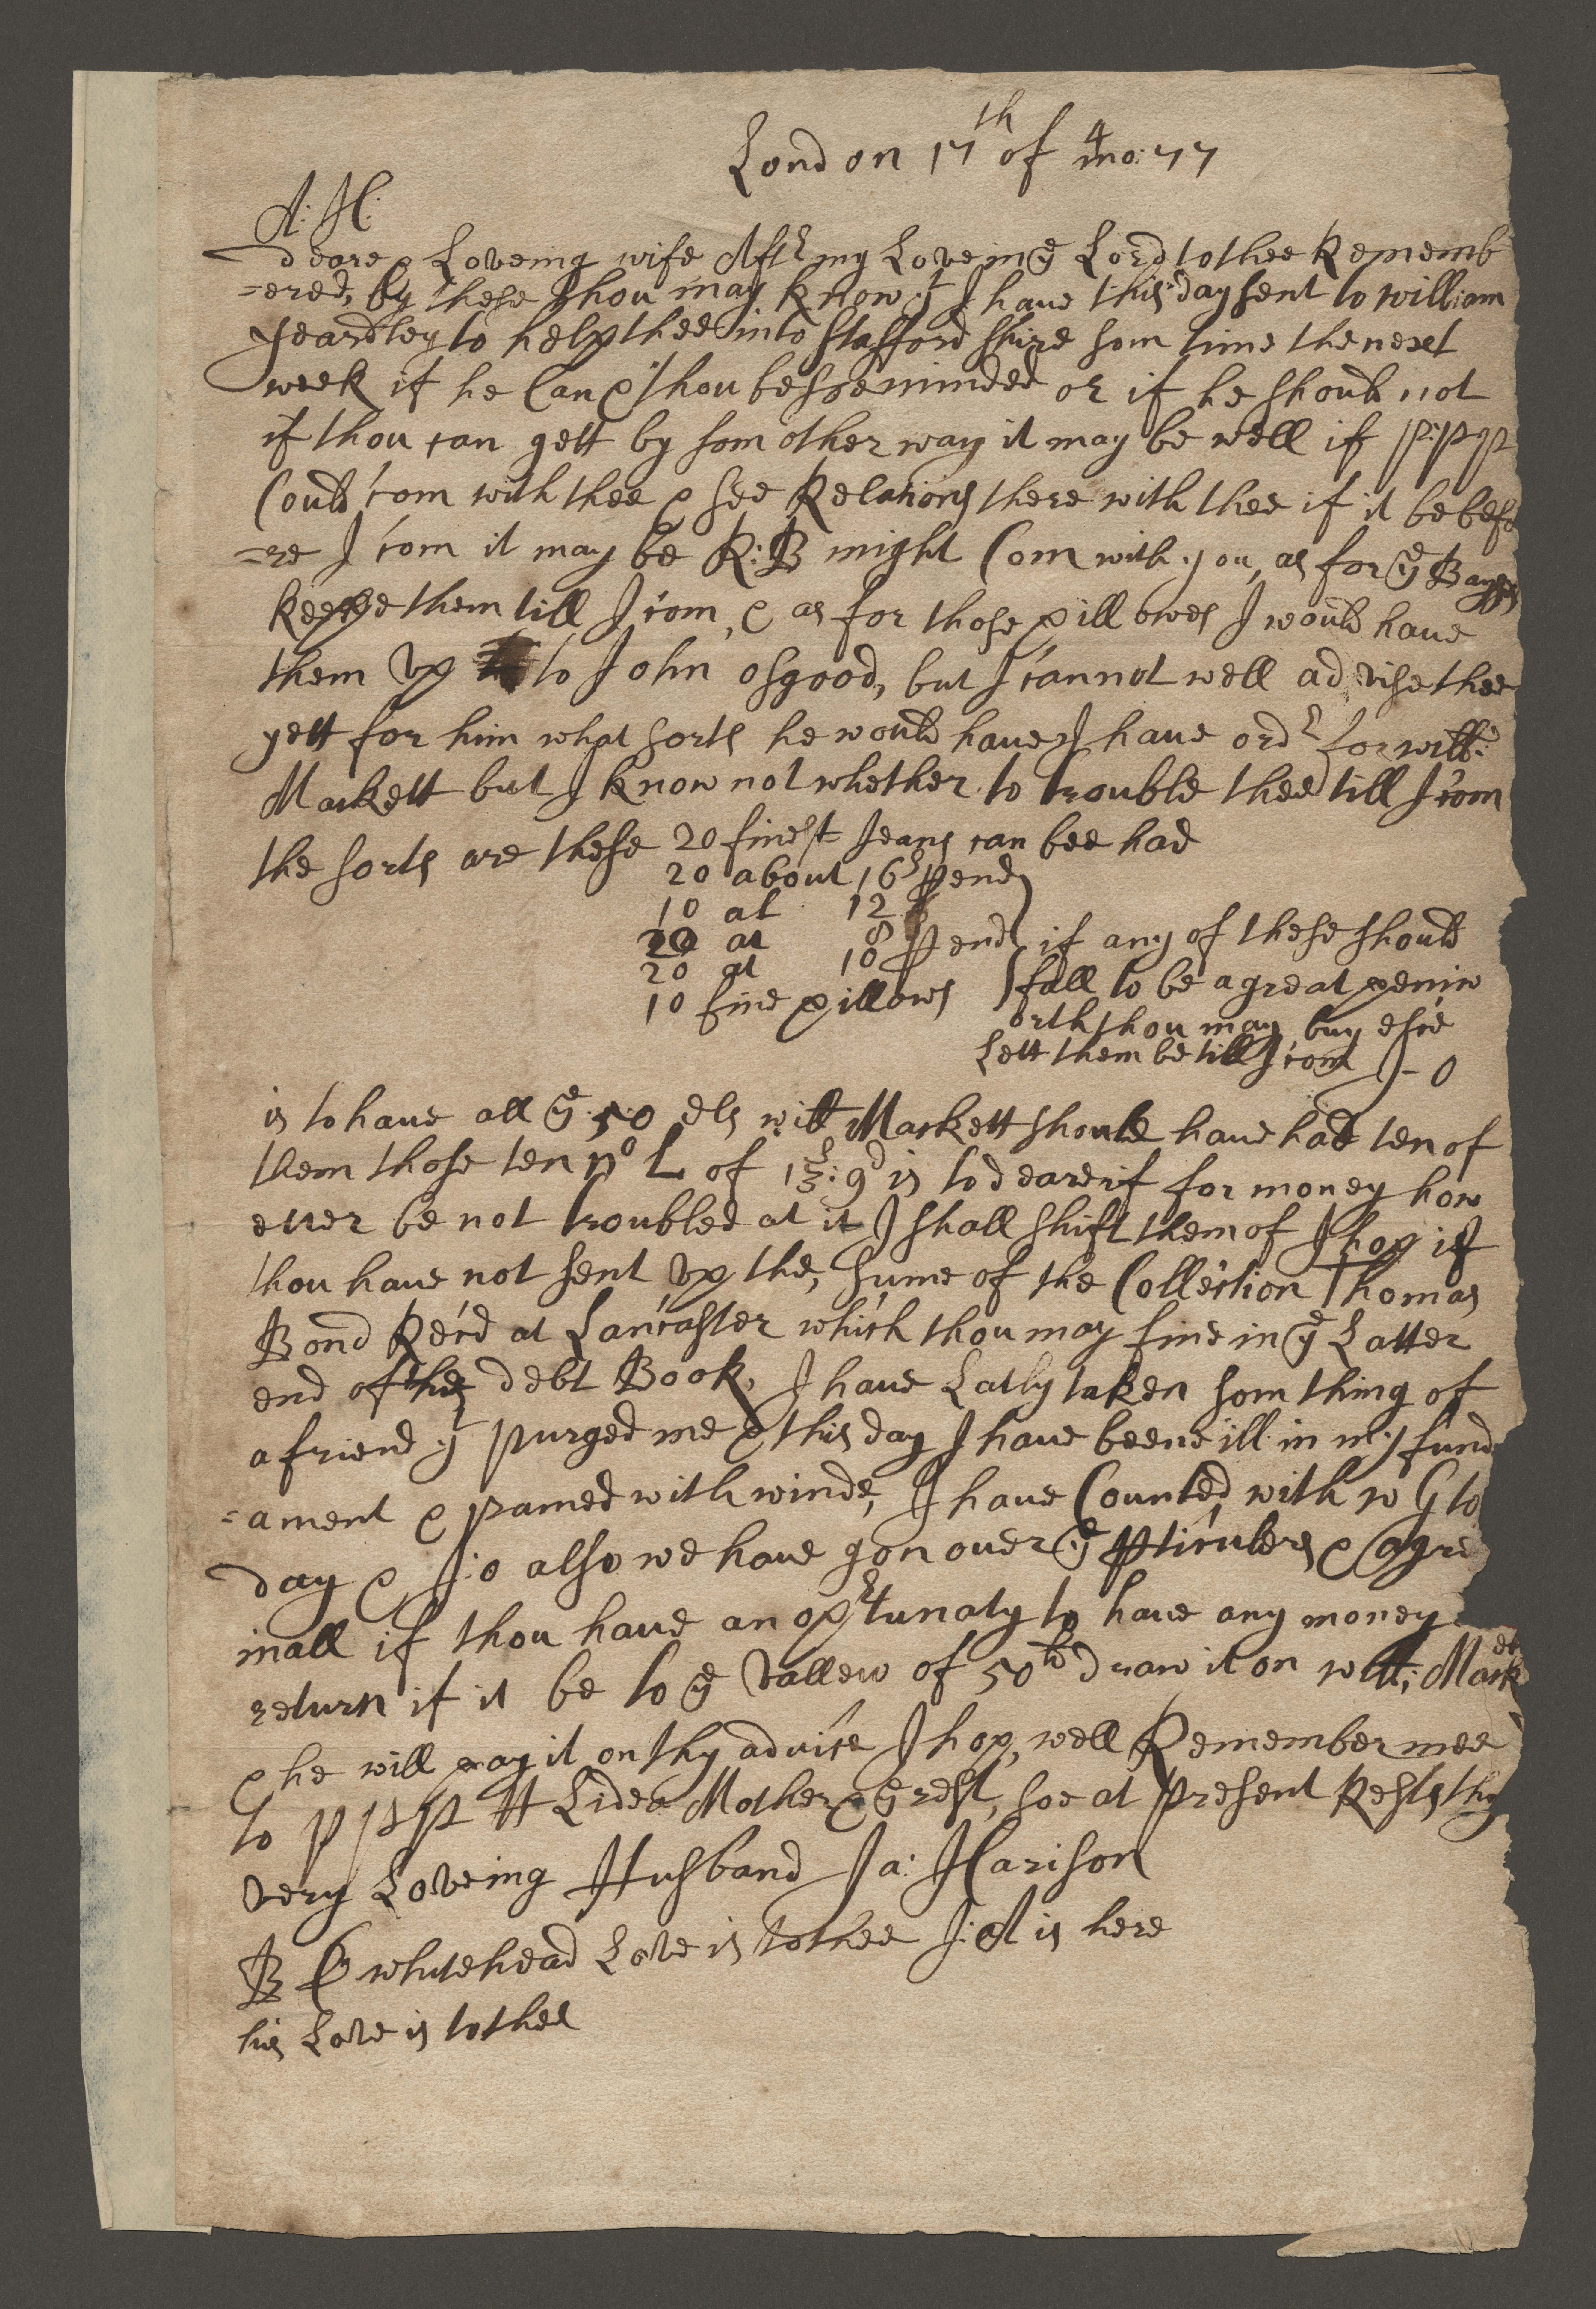 London 17th of 4mo: 77
A: H:
deare & Loveing wife Aftr my Love in ye Lord to thee Rememb
=ered, by these thou may know yt I have this day sent to william
yeardley to help thee into Stafford shire som time the next
week if he Can & thou be soe minded or if he should not
if thou can gett by som other way it may be well if P:P
Could com with thee & see Relations there with thee if it be befo
=re I com it may be R:B might Com with you, as for ye Baggs
keepe them till I com, & as for those pillowes I would have
them up to John osgood, but I cannot well advise thee
yett for him what sorts he would have I have ordr for will:
Markett but I know not whether to trouble thee till I com
the sorts are these 20 finest Jeans can bee had
20 about 16s p end
10 at 12
20 at 8 p end if any of these should
20 at 10
10 fine pillows fall to be a great peniw
orth thou may buy elsee
Lett them be till I com J-O
is to have all ye 50 els will Markett should have had ten of
them those ten no L of 13s: 9d is to deare if for money how
ever be not troubled at it I shall shift them of I hop if
thou have not sent up the, sume of the Collection Thomas
Bond Recd at Lancaster which thou may fine in ye Latter
end of the debt Book, I have Latly taken som thing of
a friend yt purged me & this day I have beene ill in my fund
=ament & pained with winde, I have Counted with w G to
day & J:o also we have gon over ye pticulers & agre
in all if thou have an oprtunaty to have any money
return if it be to ye vallew of 50lb draw it on will: Markett
& he will pay it on thy advice I hop, well Remember mee
to P P Lidea Mother & ye rest, soe at present Rests thy
very Loveing Husband Ja: Harison
B G whitehead Love is to thee J: A is here
his Love is to thee